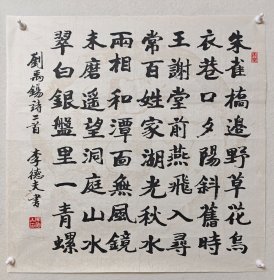 朱雀橋邊野草花烏
衣巷口夕陽斜舊時
王謝堂前燕飛入尋
常百姓家湖光秋水
兩相和潭面無風鏡
未磨遥望洞庭山水
翠白銀盤里一青螺
劉禹錫詩二首 李德夫書